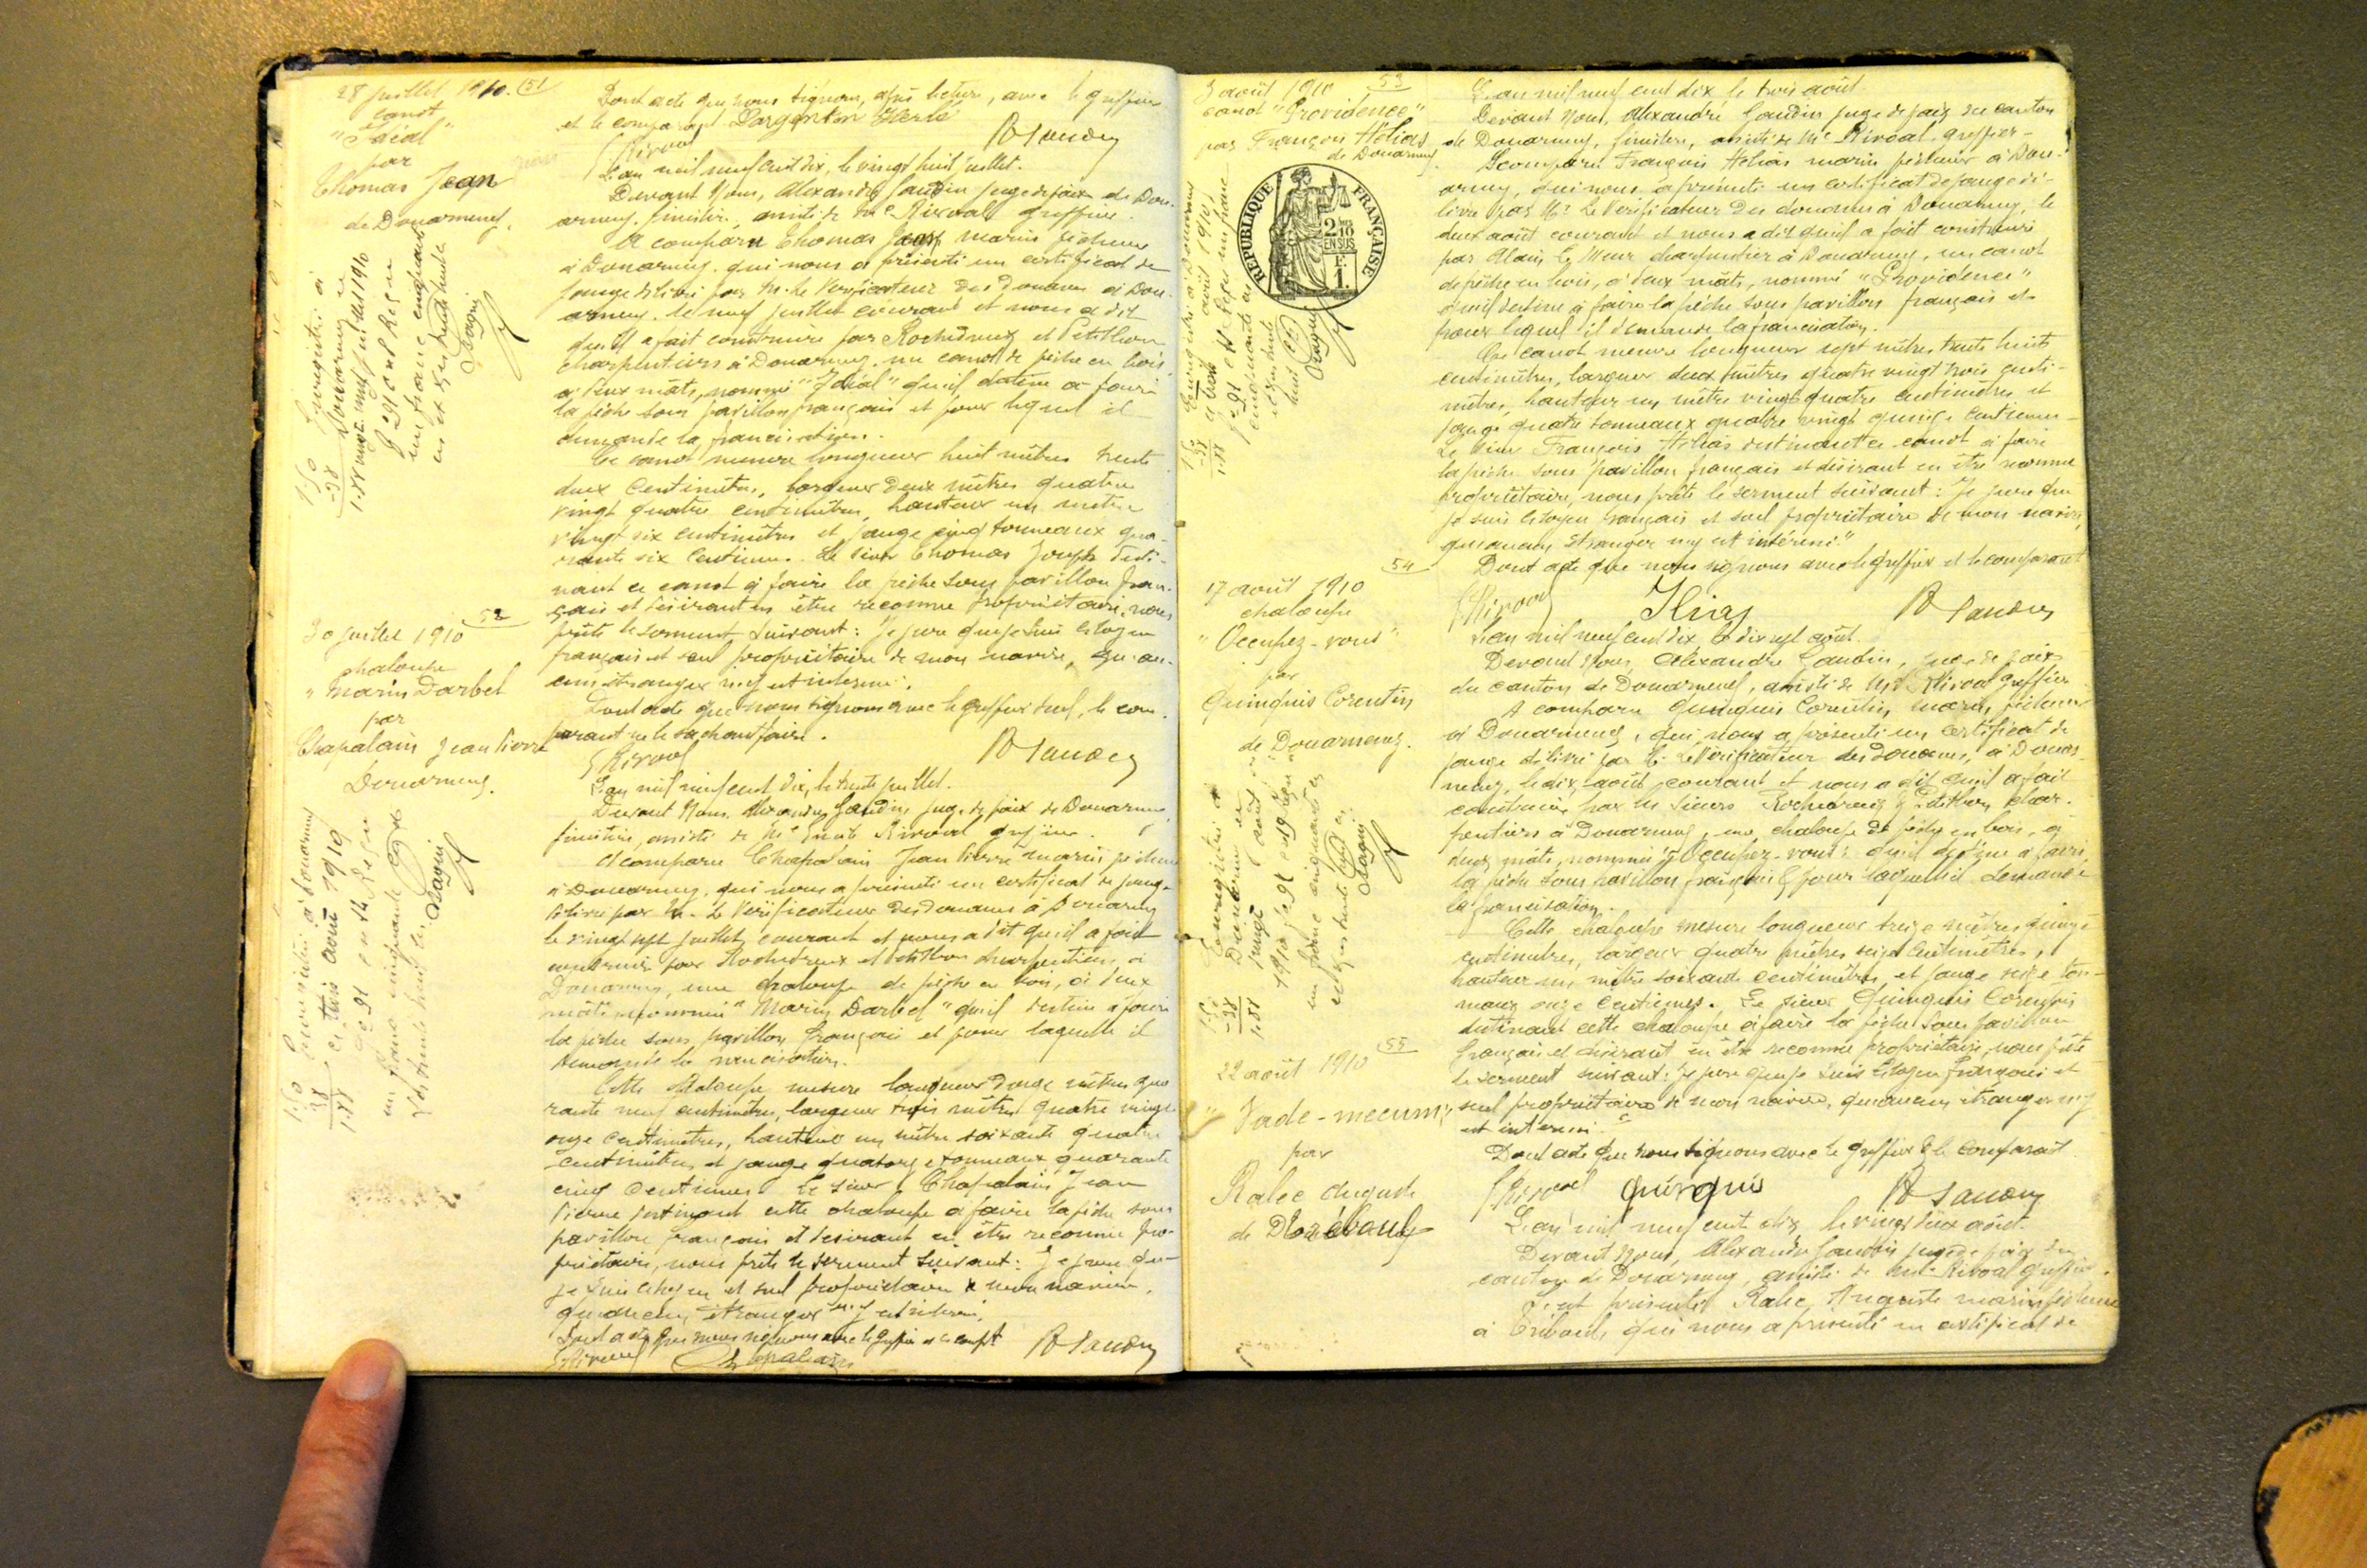 28 juillet 1910. 51
canot
"Idéal"
par
Thomas Jean
de Douarnenez.
Enregistré à
Douarnenez le
vingt neuf juillet 1910
f° 91 c
un franc cinquante
centimes trente huit
1.50
-38
1.88
Dont acte que nous signons, après lecture, avec le greffier
et le comparant Largenton Hervé
L'an mil neuf cent dix, le vingt huit juillet.
Devant Nous, Alexandre Gaudin juge de paix de Dou-
arnenez, finistère, assisté de Me Rivoal greffier.
A comparu Thomas marin pêcheur
à Douarnenez, qui nous a présenté un certificat de
jauge délivré par M. le Vérificateur des douanes à Dou-
arnenez, le neuf juillet courant et nous a dit
qu'il a fait construire par Rochedreux et Petitbon
charpentiers à Douarnenez, un canot de pêche en bois,
à deux mâts, nommé "Idéal" qu'il destine à faire
la pêche sous pavillon français et pour lequel il
demande la francisation.
Ce canot mesure longueur huit mètres trente
deux centimètres, largeur deux mètres quatre
vingt quatre centimètres, hauteur un mètre
vingt six centimètres et jauge cinq tonneaux qua-
rante six centièmes. Le sieur Thomas Joseph desti-
nant ce canot à faire la pêche sous pavillon fran-
çais et désirant en être reconnu propriétaire, nous
prête le serment suivant : Je jure que je suis citoyen
français et seul propriétaire de mon navire, qu'au-
cun étranger n'y est intéressé.
Dont acte que nous signons avec le greffier seul, le com-
parant ne le sachant faire.
30 juillet 1910 52
chaloupe
"Marin Darbel
par
Chapalain Jean Pierre
Douarnenez.
Enregistré à Douarnenez
le trois août 1910
f° 91 c 14 Reçu
un franc cinquante
1.50
38
1.88
L'an mil neuf cent dix, le trente juillet.
Devant Nous, Alexandre Gaudin, juge de paix de Douarnenez,
finistère, assisté de Me Rivoal greffier.
A comparu Chapalain Jean Pierre marin pêcheur
à Douarnenez, qui nous a présenté un certificat de jauge
délivré par M. le Vérificateur des douanes à Douarnenez
le vingt sept juillet courant et nous a dit qu'il a fait
construire par Rochedreux et Petitbon charpentiers à
Douarnenez, une chaloupe de pêche en bois, à deux
mâts nommée "Marin Darbel" qu'il destine à faire
la pêche sous pavillon français et pour laquelle il
demande la francisation.
Cette chaloupe mesure longueur douze mètres qua-
rante neuf centimètres, largeur trois mètres quatre vingt
onze centimètres, hauteur un mètre soixante quatre
centimètres et jauge quatorze tonneaux quarante
cinq centièmes. Le sieur Chapalain Jean
Pierre destinant cette chaloupe à faire la pêche sous
pavillon français et désirant en être reconnu pro-
priétaire, nous prête le serment suivant : Je jure que
je suis citoyen et seul propriétaire de mon navire,
qu'aucun étranger n'y est intéressé.
Dont acte que nous signons avec le greffier et le compt
Chapalain
3 août 1910 53
canot "Providence"
par François Hélias
de Douarnenez.
RÉPUBLIQUE FRANÇAISE
2/10 EN SUS
F. 1.
Enregistré à Douarnenez
le trois août 1910
1.50
-38
1.88
L'an mil neuf cent dix le trois août.
Devant Nous, Alexandre Gaudin juge de paix du canton
de Douarnenez, finistère, assisté de Me Rivoal greffier-
A comparu François Hélias marin pêcheur à Dou-
arnenez, qui nous a présenté un certificat de jauge dé-
livré par Mr le Vérificateur des douanes à Douarnenez, le
deux août courant et nous a dit qu'il a fait construire
par Alain Le Meur charpentier à Douarnenez, un canot
de pêche en bois, à deux mâts, nommé "Providence"
qu'il destine à faire la pêche sous pavillon français et
pour lequel il demande la francisation.
Ce canot mesure longueur sept mètres trente huit
centimètres, largeur deux mètres quatre vingt trois centi-
mètres, hauteur un mètre vingt quatre centimètres et
jauge quatre tonneaux quatre vingt quinze centièmes-
Le sieur François Hélias destinant ce canot à faire
la pêche sous pavillon français et désirant en être reconnu
propriétaire, nous prête le serment suivant : "Je jure que
je suis citoyen français et seul propriétaire de mon navire,
qu'aucun étranger n'y est intéressé."
Dont acte que nous signons avec le greffier et le comparant
17 août 1910 54
chaloupe
"Occupez-vous"
par
Quinquis Corentin
de Douarnenez.
1.50
-38
1.88
L'an mil neuf cent dix, le dix sept août.
Devant Nous, Alexandre Gaudin, juge de paix
du canton de Douarnenez, assisté de Me Rivoal greffier
A comparu Quinquis Corentin, marin pêcheur
à Douarnenez, qui nous a présenté un certificat de
jauge délivré par M. le Vérificateur des douanes, à Douar-
nenez, le dix août courant et nous a dit qu'il a fait
construire par les sieurs Rochedreux & Petitbon, char-
pentiers à Douarnenez, une chaloupe de pêche en bois, à
deux mâts, nommée "Occupez-vous" qu'il destine à faire
la pêche sous pavillon français & pour laquelle il demande
la francisation.
Cette chaloupe mesure longueur treize mètres quinze
centimètres, largeur quatre mètres seize centimètres,
hauteur un mètre soixante centimètres et jauge seize ton-
neaux onze centièmes. Le sieur Quinquis Corentin
destinant cette chaloupe à faire la pêche sous pavillon
français et désirant en être reconnu propriétaire, nous prête
le serment suivant : Je jure que je suis citoyen français et
seul propriétaire de mon navire, qu'aucun étranger n'y
est intéressé."
Dont acte que nous signons avec le greffier & le comparant
Quinquis
22 août 1910 55
"Vade-mecum"
par
Ralec Auguste
de Tréboul
L'an mil neuf cent dix, le vingt deux août.
Devant Nous, Alexandre Gaudin juge de paix du
canton de Douarnenez, assisté de Me Rivoal greffier.
S'est présenté Ralec Auguste marin pêcheur
à Tréboul, qui nous a présenté un certificat de